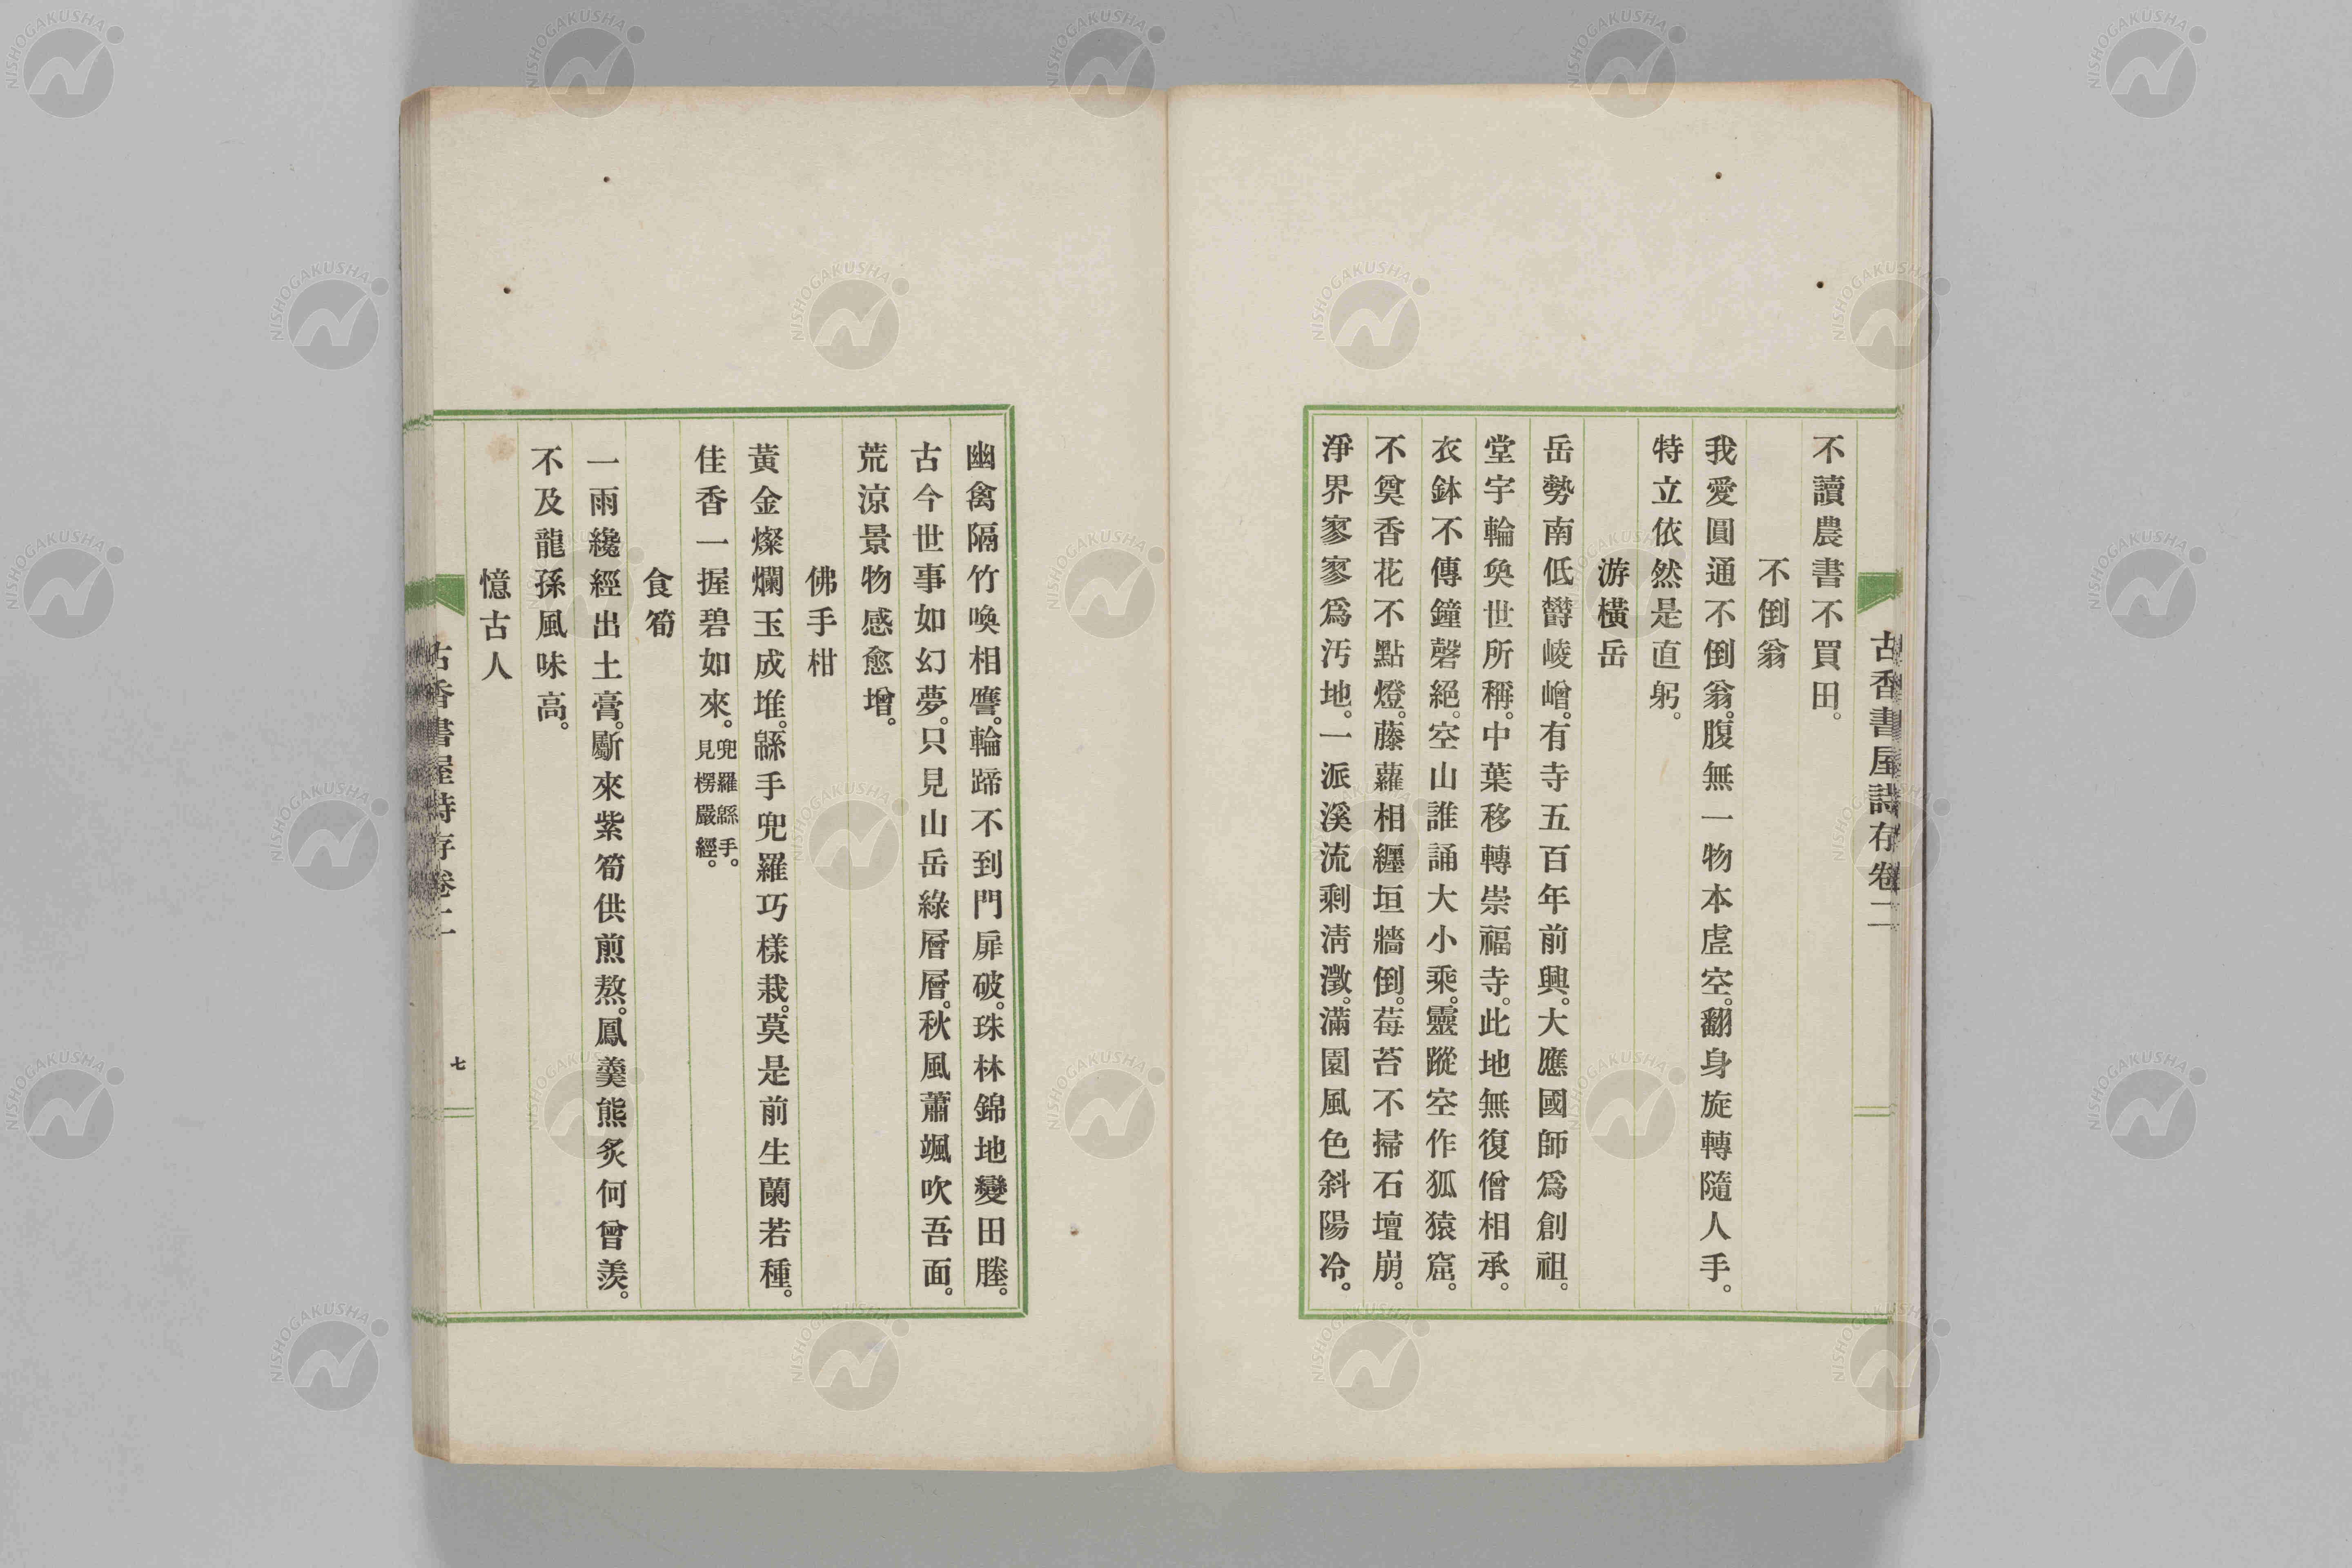 古香書屋詩存卷二
不讀農書不買田。
不倒翁
我愛圓通不倒翁。腹無一物本虛空。翻身旋轉隨人手。
特立依然是直躬。
游橫岳
岳勢南低欝崚嶒。有寺五百年前興。大應國師爲創祖。
堂宇輪奐世所稱。中葉移轉崇福寺。此地無復僧相承。
衣鉢不傳鐘磬絕。空山誰誦大小乘。靈蹤空作狐猿窟。
不奠香花不點燈。藤蘿相纏垣牆倒。莓苔不掃石壇崩。
淨界寥寥爲汚地。一派溪流剩淸澂。滿園風色斜陽冷。
幽禽隔竹喚相譍。輪蹄不到門扉破。珠林錦地變田塍。
古今世事如幻夢。只見山岳綠層層。秋風蕭颯吹吾面。
荒涼景物感愈增。
佛手柑
黃金燦爛玉成堆。緜手兜羅巧樣栽。莫是前生蘭若種。
佳香一握碧如來。兜羅緜手。見楞嚴經。
食筍
一雨纔經出土膏。斸來紫筍供煎熬。鳳羹熊炙何曾羨。
不及龍孫風味高。
憶古人
古香書屋詩存卷二
七
NISHOGAKUSHA